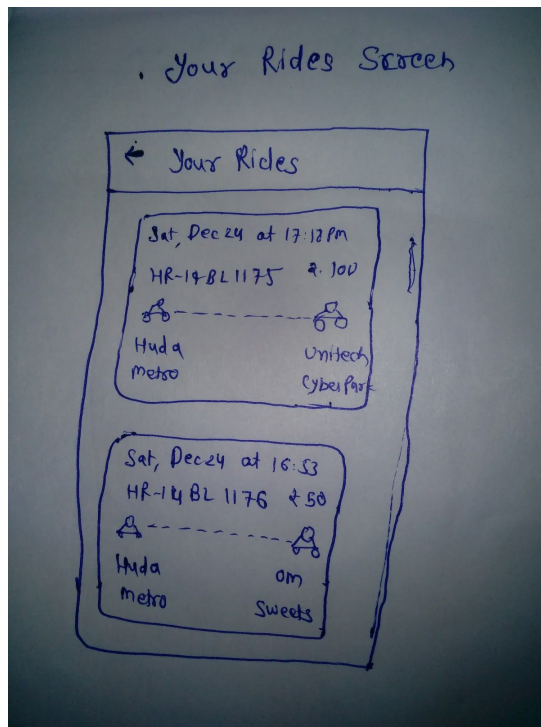 . Your Rides Screen
← Your Rides
Sat, Dec 24 at 17:18 PM
HR-14-BL 1175 ₹. 100
Huda Unitech
Metro CyberPark
Sat, Dec 24 at 16:53
HR-14 BL 1176 ₹ 50
Huda Om
Metro Sweets